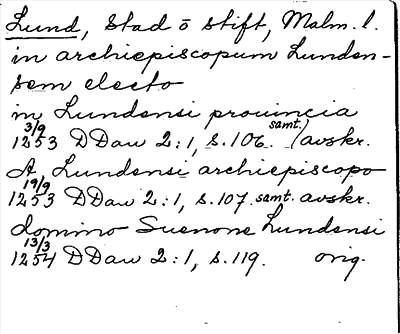 Lund, Stad o stift, Malm. l.
in archiepiscopum Lunden-
sem electo
in Lundensi prouincia
3/9 samt.
1253 DDan 2:1, s. 106. (avskr.
A, Lundensi archiepiscopo
19/9
1253 DDan 2:1, s. 107. samt. avskr.
domino Suenone Lundensi
13/3
1254 DDan 2:1, s. 119. orig.